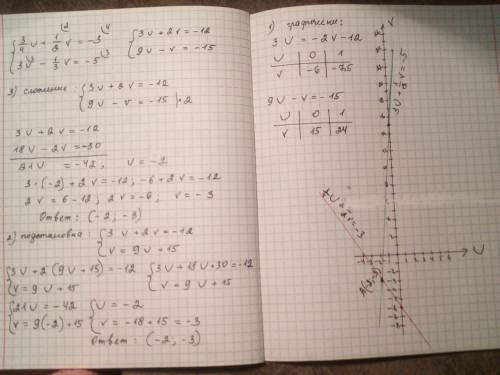 {3/4 U + 1/2 V = -3 {3U + 2V = -12
{3U - 1/3 V = -5 {9U - V = -15
3) сложение: {3U + 2V = -12
{9U - V = -15 | ·2
3U + 2V = -12
18U - 2V = -30
21U = -42, U = -2
3·(-2) + 2V = -12; -6 + 2V = -12
2V = 6 - 12; 2V = -6; V = -3
Ответ: (-2; -3)
2) подстановка: {3U + 2V = -12
{V = 9U + 15
{3U + 2(9U + 15) = -12 {3U + 18U + 30 = -12
{V = 9U + 15 {V = 9U + 15
{21U = -42 {U = -2
{V = 9(-2) + 15 {V = -18 + 15 = -3
Ответ: (-2; -3)
1) графчение:
3U = -2V - 12
U | 0 | 1
V | -6 | -7,5
9U - V = -15
U | 0 | 1
V | 15 | 24
V
U
A(-2;-3)